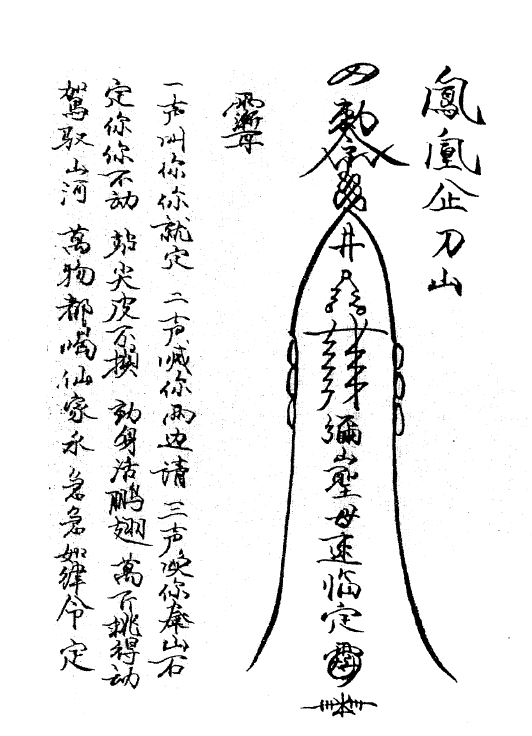 鳳凰企刀山
勅令
井
彌山聖母速临定
一声叫你你就定 二声喊你两边请 三声喚你奉山石
定你你不动 站尖皮不損 动身活鵬翅 萬斤挑得动
駕馭山河 萬物都喝仙家水 急急如律令 定